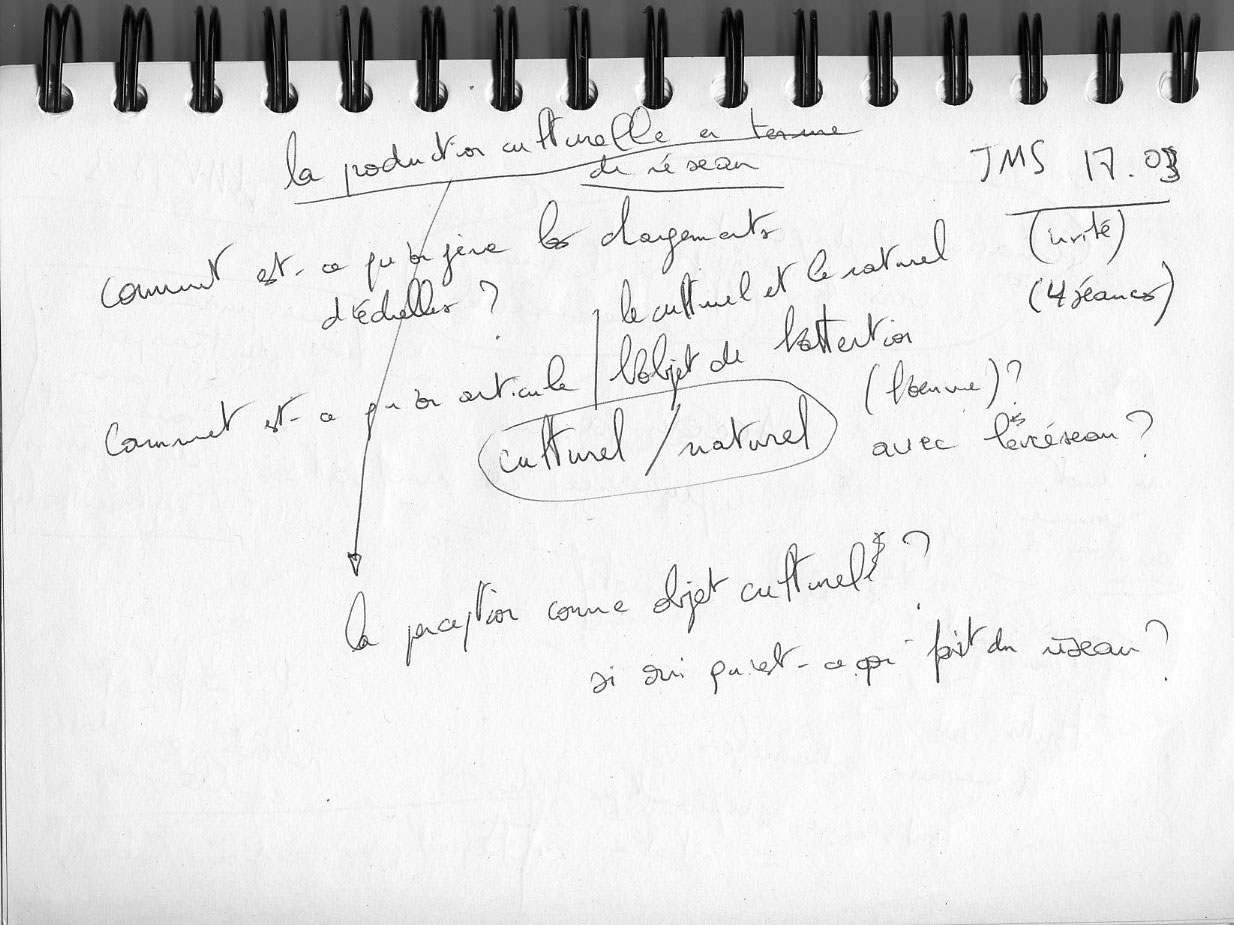 la production culturelle en terme
de réseau
JMS 17.03
(invité)
(4 séances)
Comment est-ce qu'on gère les changements
d'échelles ?
le culturel et le naturel
Comment est-ce qu'on articule l'objet de l'attention
(l'oeuvre) ?
culturel / naturel
avec les réseau ?
la perception comme objet culturel ?
si oui qu'est-ce qui fait du réseau ?